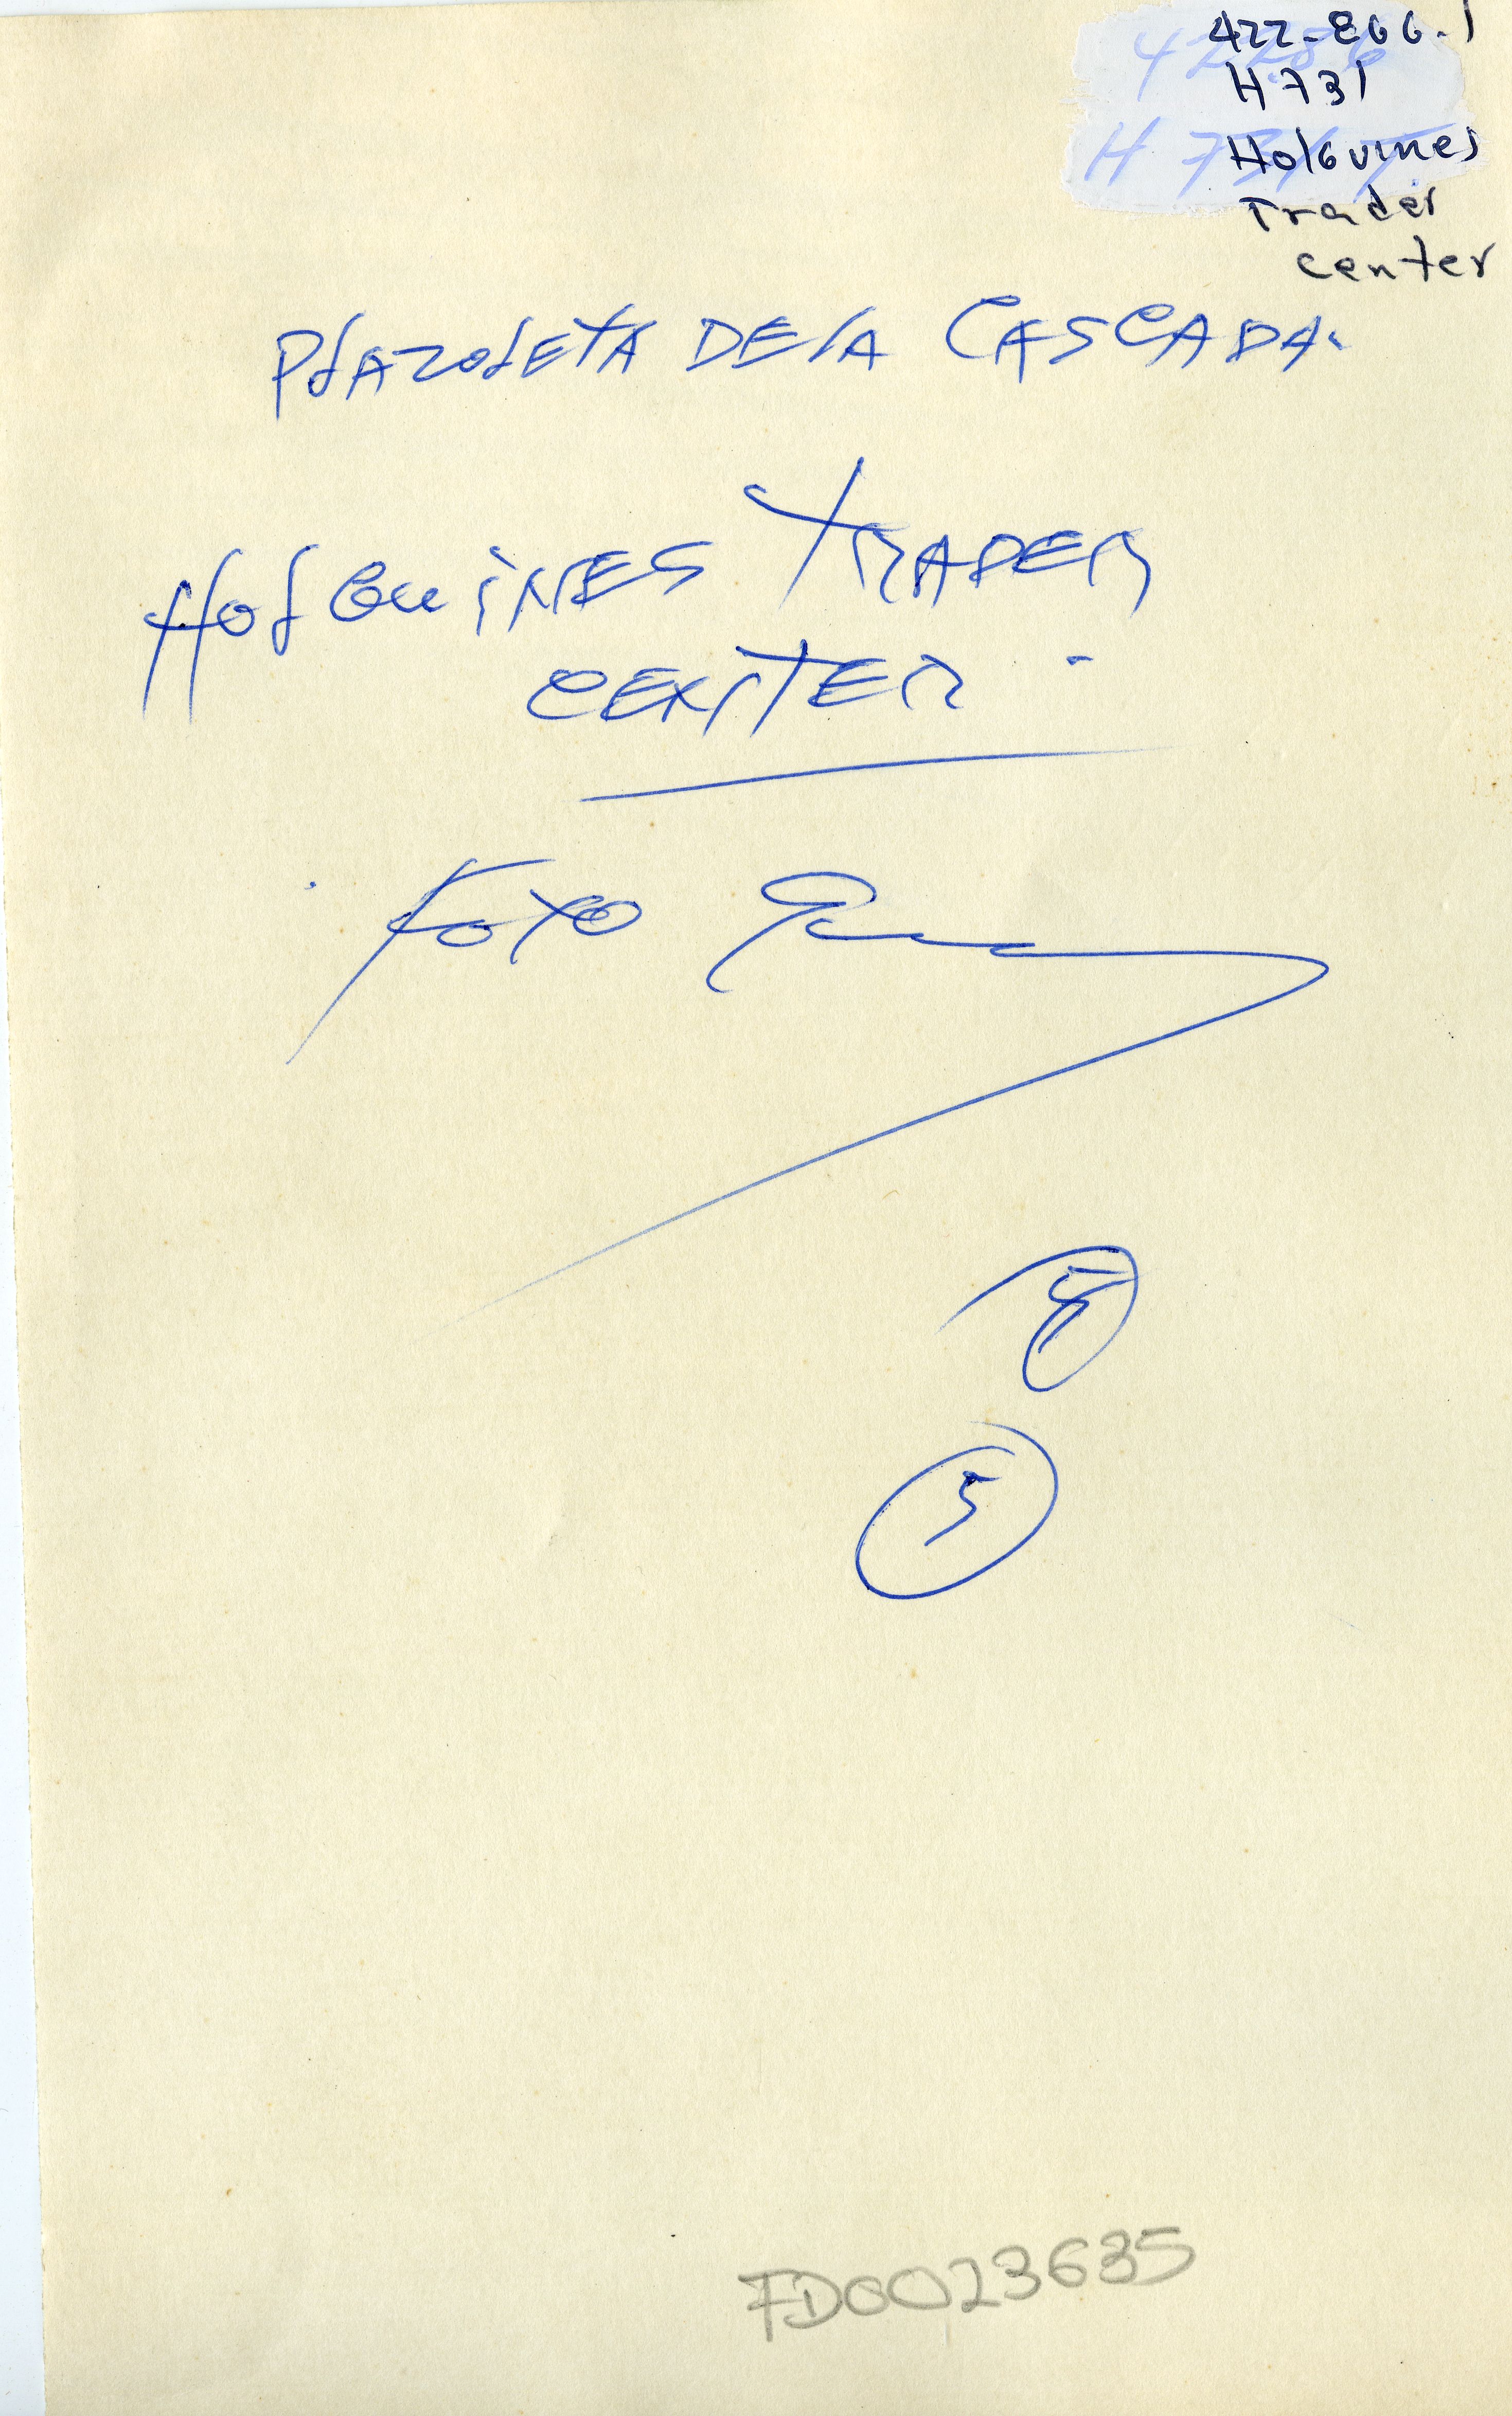 422-866.1
H731
Holguines
Trader
center
PlAzolETA DE lA CASCADA.
HolGuiNES TRADER
CENTER.
Foto
5
FD0023635